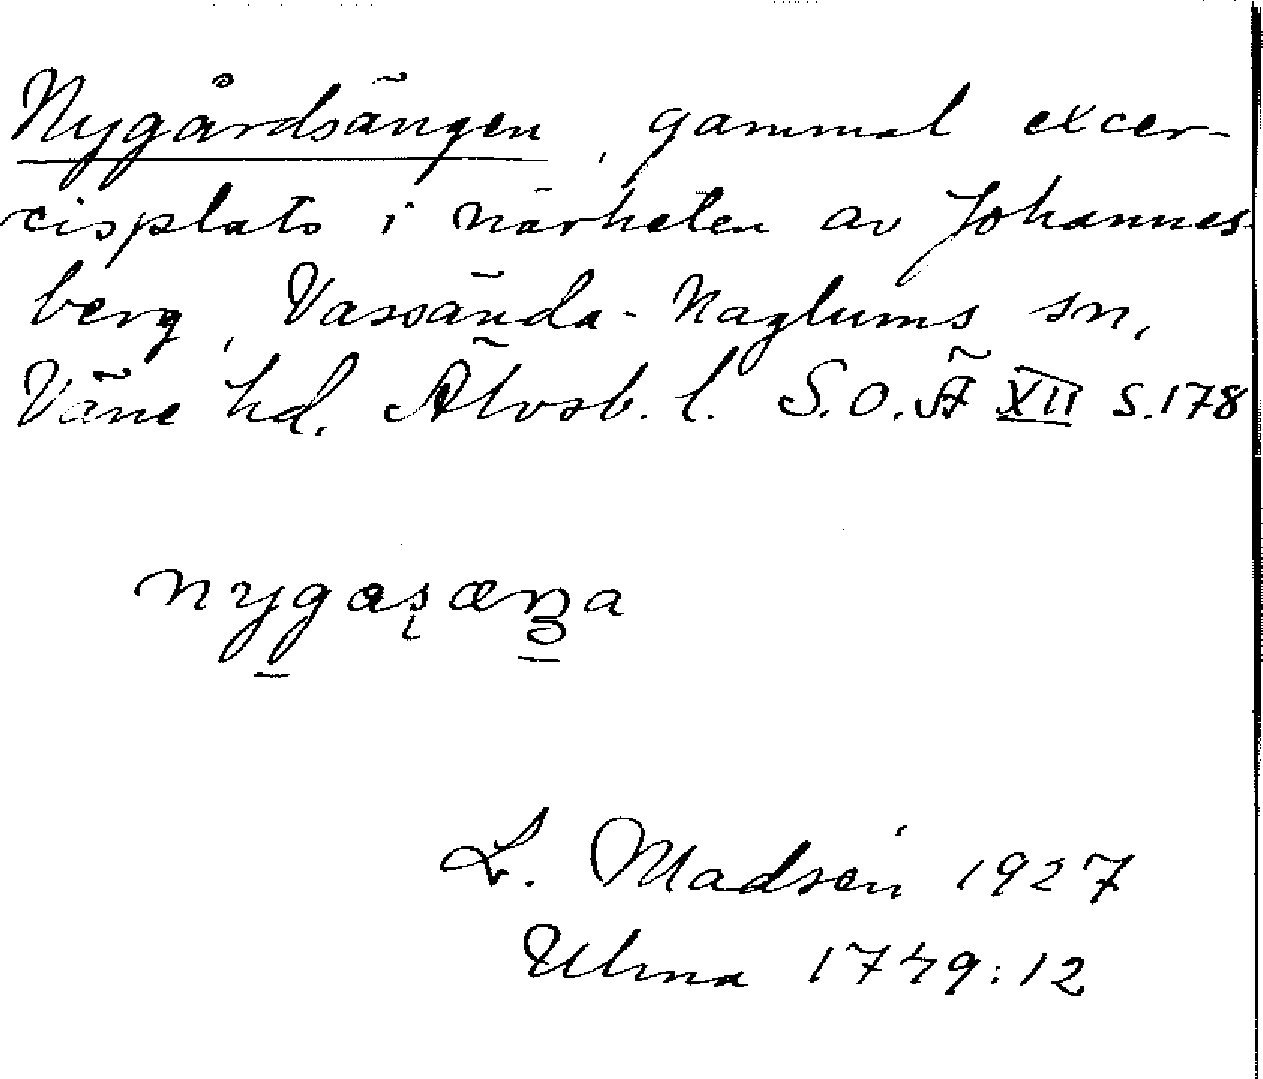 Nygårdsängen, gammal excer-
cisplats i närheten av Johannes-
berg, Vassända-Naglums sn,
Väne hd. Älvsb. l. S.O.Ä XII s.178
L. Madsén 1927
Ulma 1749:12